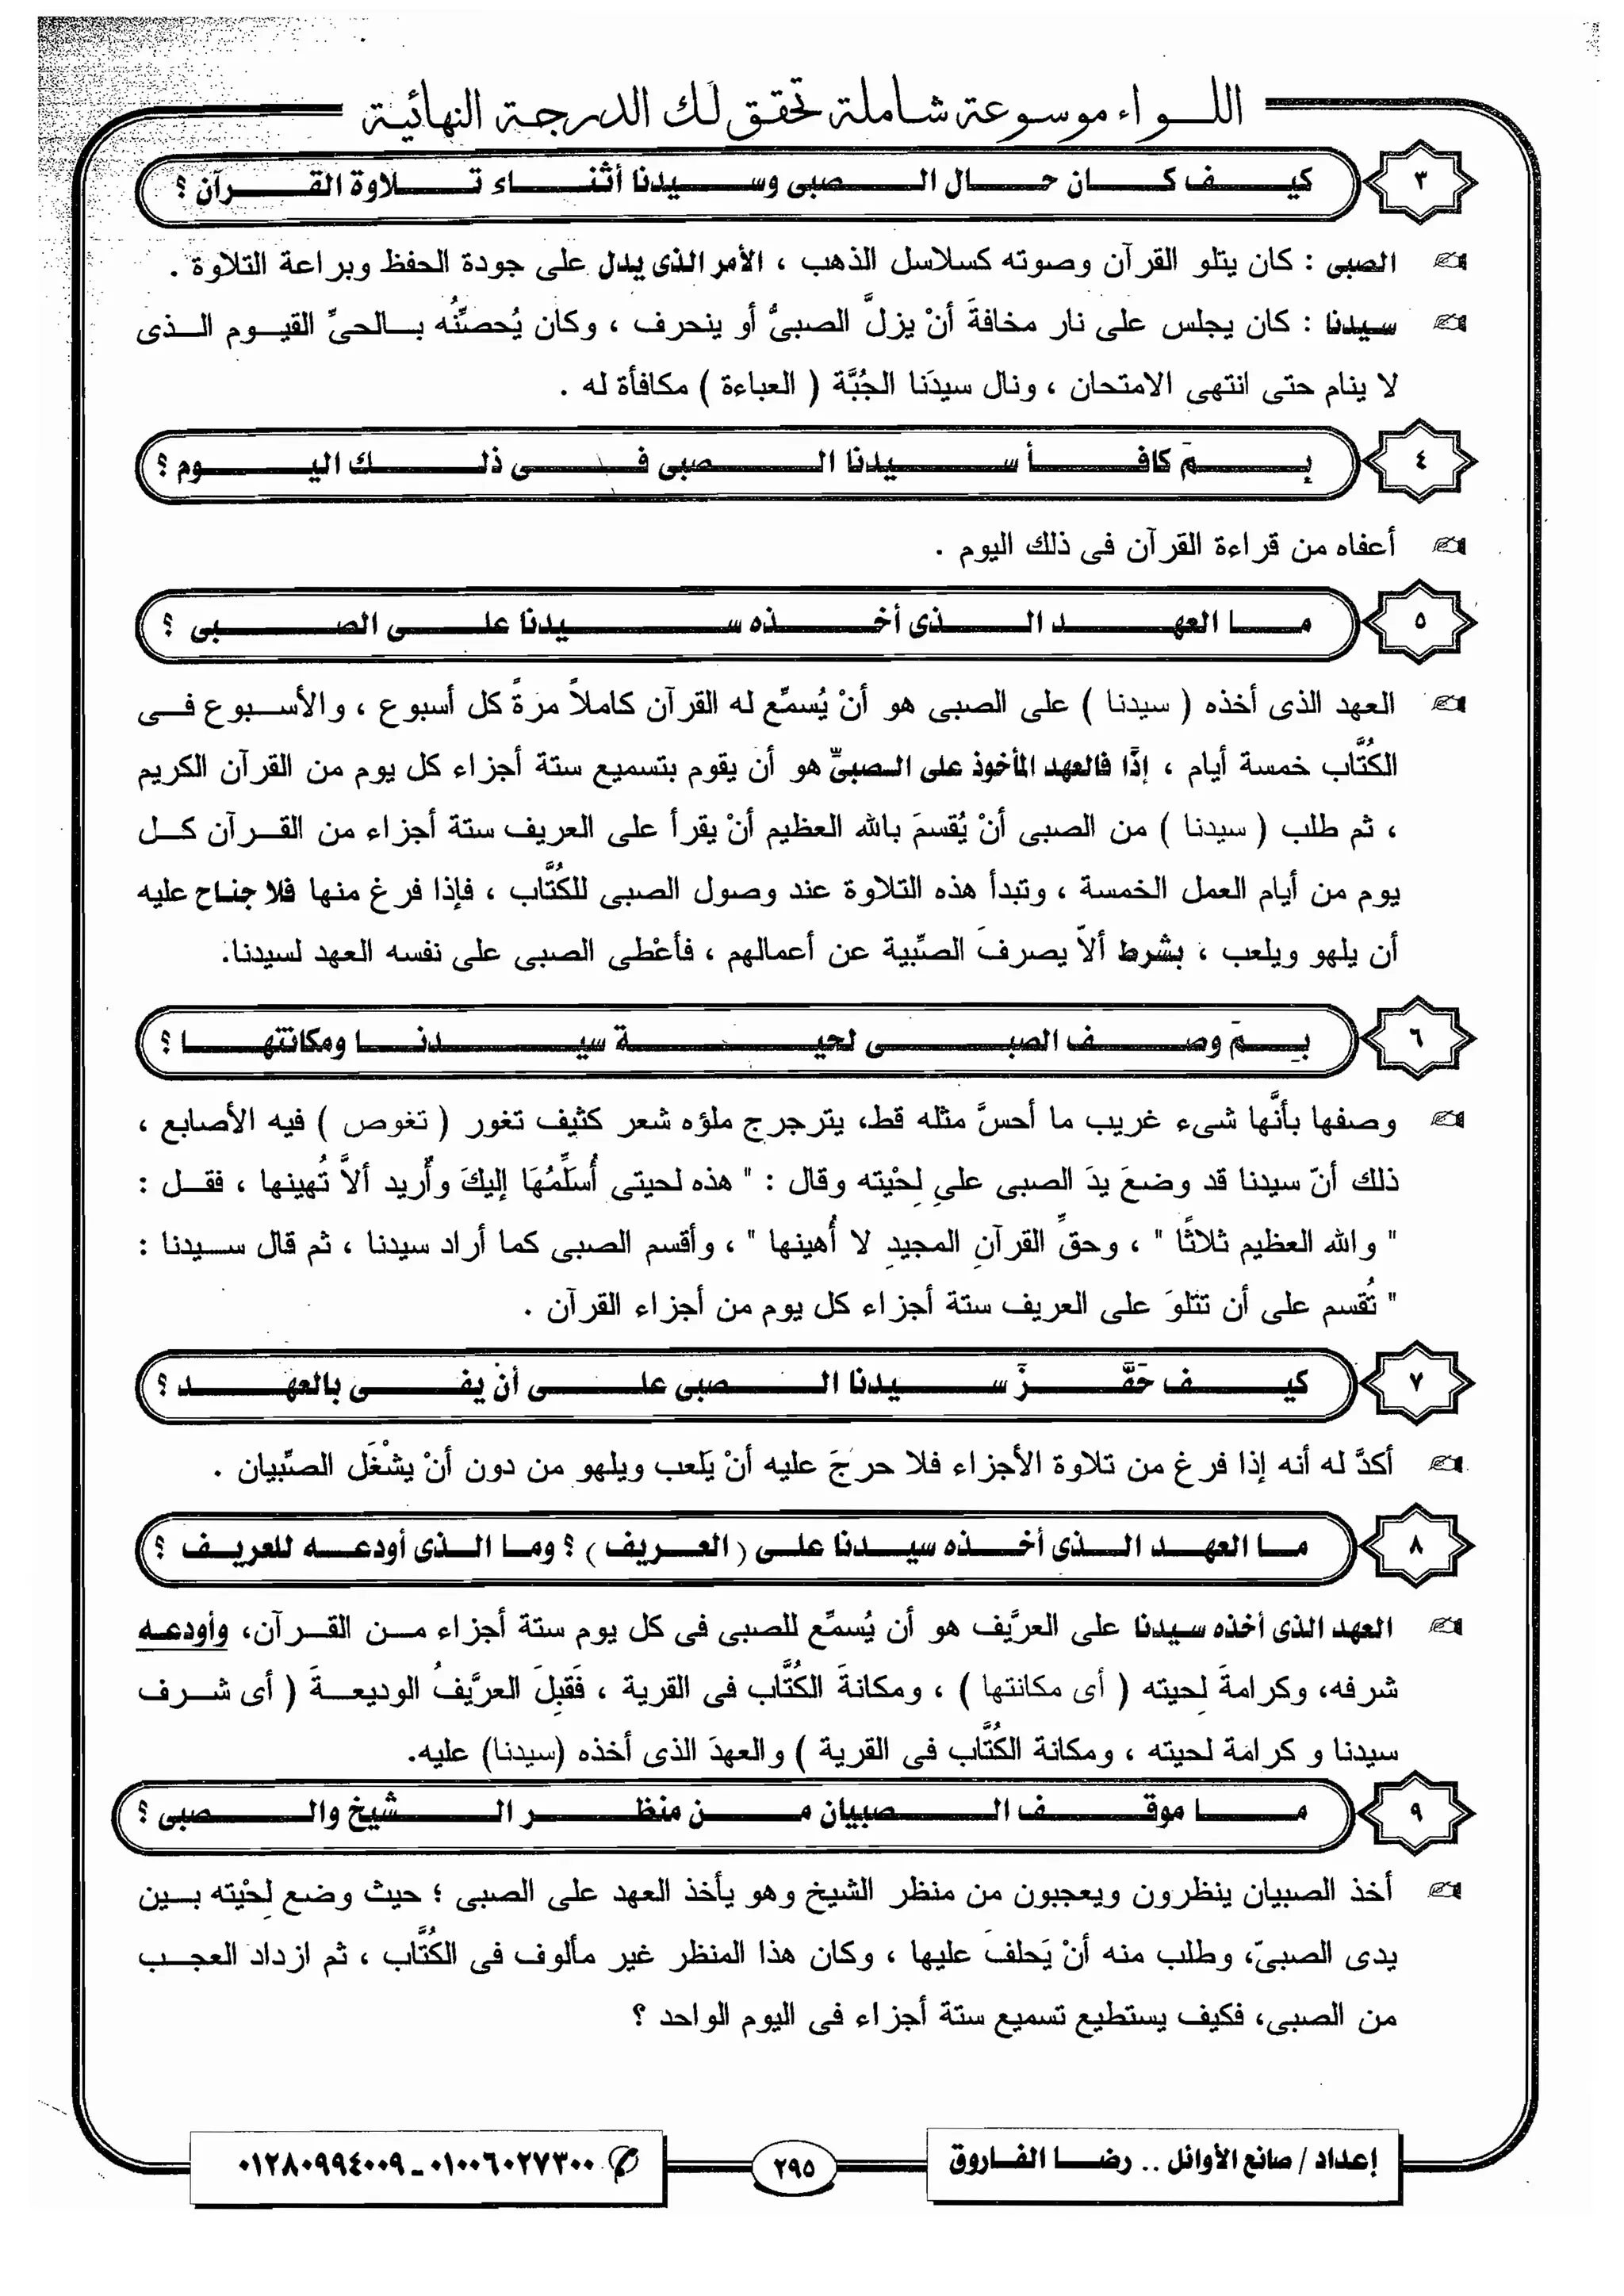 اللواء موسوعة شاملة تحقق لك الدرجة النهائية
٣ كيف كان حال الصبى وسيدنا أثناء تلاوة القرآن ؟
الصبى : كان يتلو القرآن وصوته كسلاسل الذهب ، الأمر الذى يدل على جودة الحفظ وبراعة التلاوة .
سيدنا : كان يجلس على نار مخافةَ أنْ يزلَّ الصبىُّ أو ينحرف ، وكان يُحصِّنُه بالحىِّ القيوم الذى
لا ينام حتى انتهى الامتحان ، ونال سيدَنا الجُبَّة ( العباءة ) مكافأة له .
٤ بِمَ كافأ سيدنا الصبى فى ذلك اليوم ؟
أعفاه من قراءة القرآن فى ذلك اليوم .
٥ ما العهد الذى أخذه سيدنا على الصبى ؟
العهد الذى أخذه ( سيدنا ) على الصبى هو أنْ يُسمِّع له القرآن كاملاً مرَةً كل أسبوع ، والأسبوع فى
الكُتَّاب خمسة أيام ، إذًا فالعهد المأخوذ على الصبىِّ هو أن يقوم بتسميع ستة أجزاء كل يوم من القرآن الكريم
، ثم طلب ( سيدنا ) من الصبى أنْ يُقسمَ بالله العظيم أنْ يقرأ على العريف ستة أجزاء من القرآن كل
يوم من أيام العمل الخمسة ، وتبدأ هذه التلاوة عند وصول الصبى للكُتَّاب ، فإذا فرغ منها فلا جناح عليه
أن يلهو ويلعب ، بشرط ألاّ يصرفَ الصِّبية عن أعمالهم ، فأعْطى الصبى على نفسه العهد لسيدنا.
٦ بِمَ وصف الصبى لحية سيدنا ومكانتها ؟
وصفها بأنَّها شىء غريب ما أحسَّ مثله قط، يترجرج ملؤه شعر كثيف تغور ( تغوص ) فيه الأصابع ،
ذلك أنّ سيدنا قد وضعَ يدَ الصبى على لِحْيته وقال : " هذه لحيتى أُسَلِّمُهَا إليكَ وأُريد ألاَّ تُهينها ، فقل :
" والله العظيم ثلاثًا " ، وحقِّ القرآنِ المجيدِ لا أُهينها " ، وأقسم الصبى كما أراد سيدنا ، ثم قال سيدنا :
" تُقسم على أن تتلوَ على العريف ستة أجزاء كل يوم من أجزاء القرآن .
٧ كيف حَفَّزَ سيدنا الصبى على أن يفى بالعهد ؟
أكدَّ له أنه إذا فرغ من تلاوة الأجزاء فلا حرجَ عليه أنْ يَلعب ويلهو من دون أنْ يشْغَل الصِّبيان .
٨ ما العهد الذى أخذه سيدنا على (العريف) ؟ وما الذى أودعه للعريف ؟
العهد الذى أخذه سيدنا على العرَّيف هو أن يُسمِّع للصبى فى كل يوم ستة أجزاء من القرآن، وأودعه
شرفه، وكرامةَ لِحيته ( أى مكانتها ) ، ومكانةَ الكُتَّاب فى القرية ، فَقَبِلَ العرَّيفُ الوديعةَ ( أى شرف
سيدنا و كرامة لحيته ، ومكانة الكُتَّاب فى القرية ) والعهدَ الذى أخذه (سيدنا) عليه.
٩ ما موقف الصبيان من منظر الشيخ والصبى ؟
أخذ الصبيان ينظرون ويعجبون من منظر الشيخ وهو يأخذ العهد على الصبى ؛ حيث وضع لِحْيته بين
يدى الصبىّ، وطلب منه أنْ يَحلفَ عليها ، وكان هذا المنظر غير مألوف فى الكُتَّاب ، ثم ازداد العجب
من الصبى، فكيف يستطيع تسميع ستة أجزاء فى اليوم الواحد ؟
إعداد / صانع الأوائل .. رضا الفاروق
٢٩٥
٠١٠٠٦٠٢٧٣٠٠ - ٠١٢٨٠٩٩٤٠٠٩